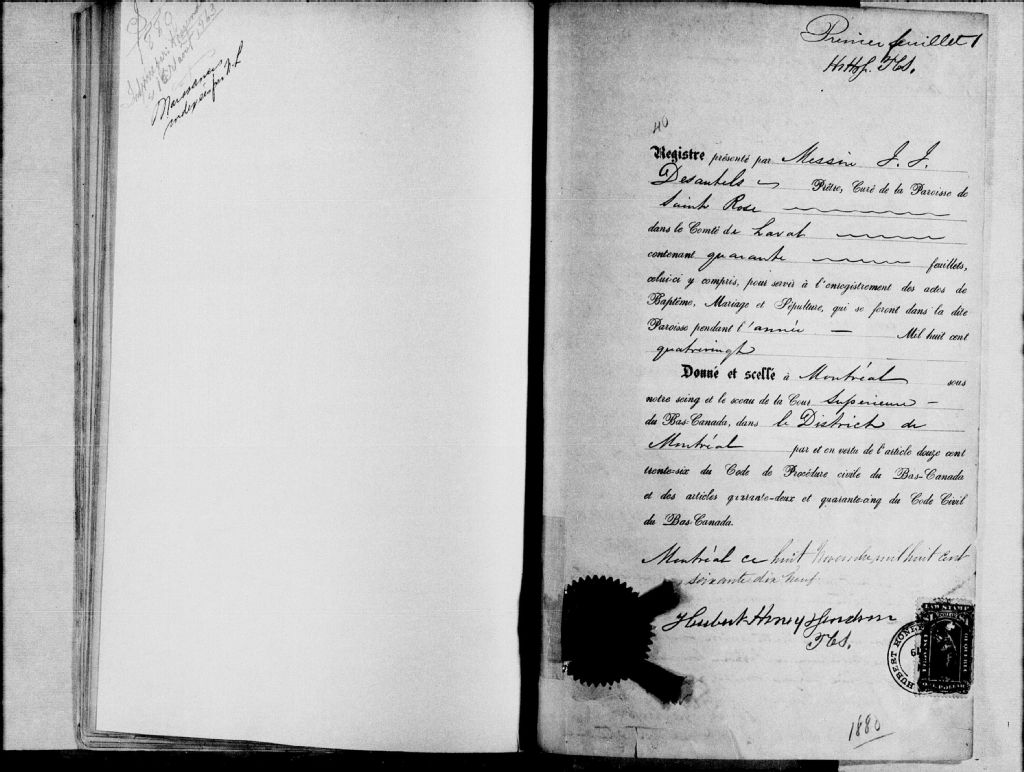 1880
Premier feuillet 1
40
Registre présenté par Messire J. J.
Desautels Prêtre, Curé de la Paroisse de
Sainte Rose
dans le Comté de Laval
contenant quarante feuillets,
celui-ci y compris, pour servir à l'enregistrement des actes de
Baptême, Mariage et Sépulture, qui se feront dans la dite
Paroisse pendant l'année — Mil huit cent
quatrevingt
Donné et scellé à Montréal sous
notre seing et le sceau de la Cour Supérieure —
du Bas-Canada, dans le District de
Montréal par et en vertu de l'article douze cent
trente-six du Code de Procédure civile du Bas-Canada
et des articles quarante-deux et quarante-cinq du Code Civil
du Bas-Canada.
Montréal ce huit Novembre mil huit cent
soixante dix neuf
Hubert Henry
LAW STAMP
HUBERT HONE
1880